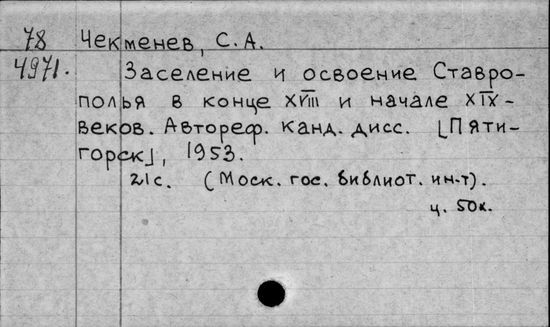 78 Чекменев, С. А.
4971. Заселение и освоение Ставро-
полья в конце XVIII и начале XIX-
веков. Автореф. канд. дисс. [Пяти-
горск], 1953.
21с. (Моск. гос. библиот. ин-т).
ц. 50к.